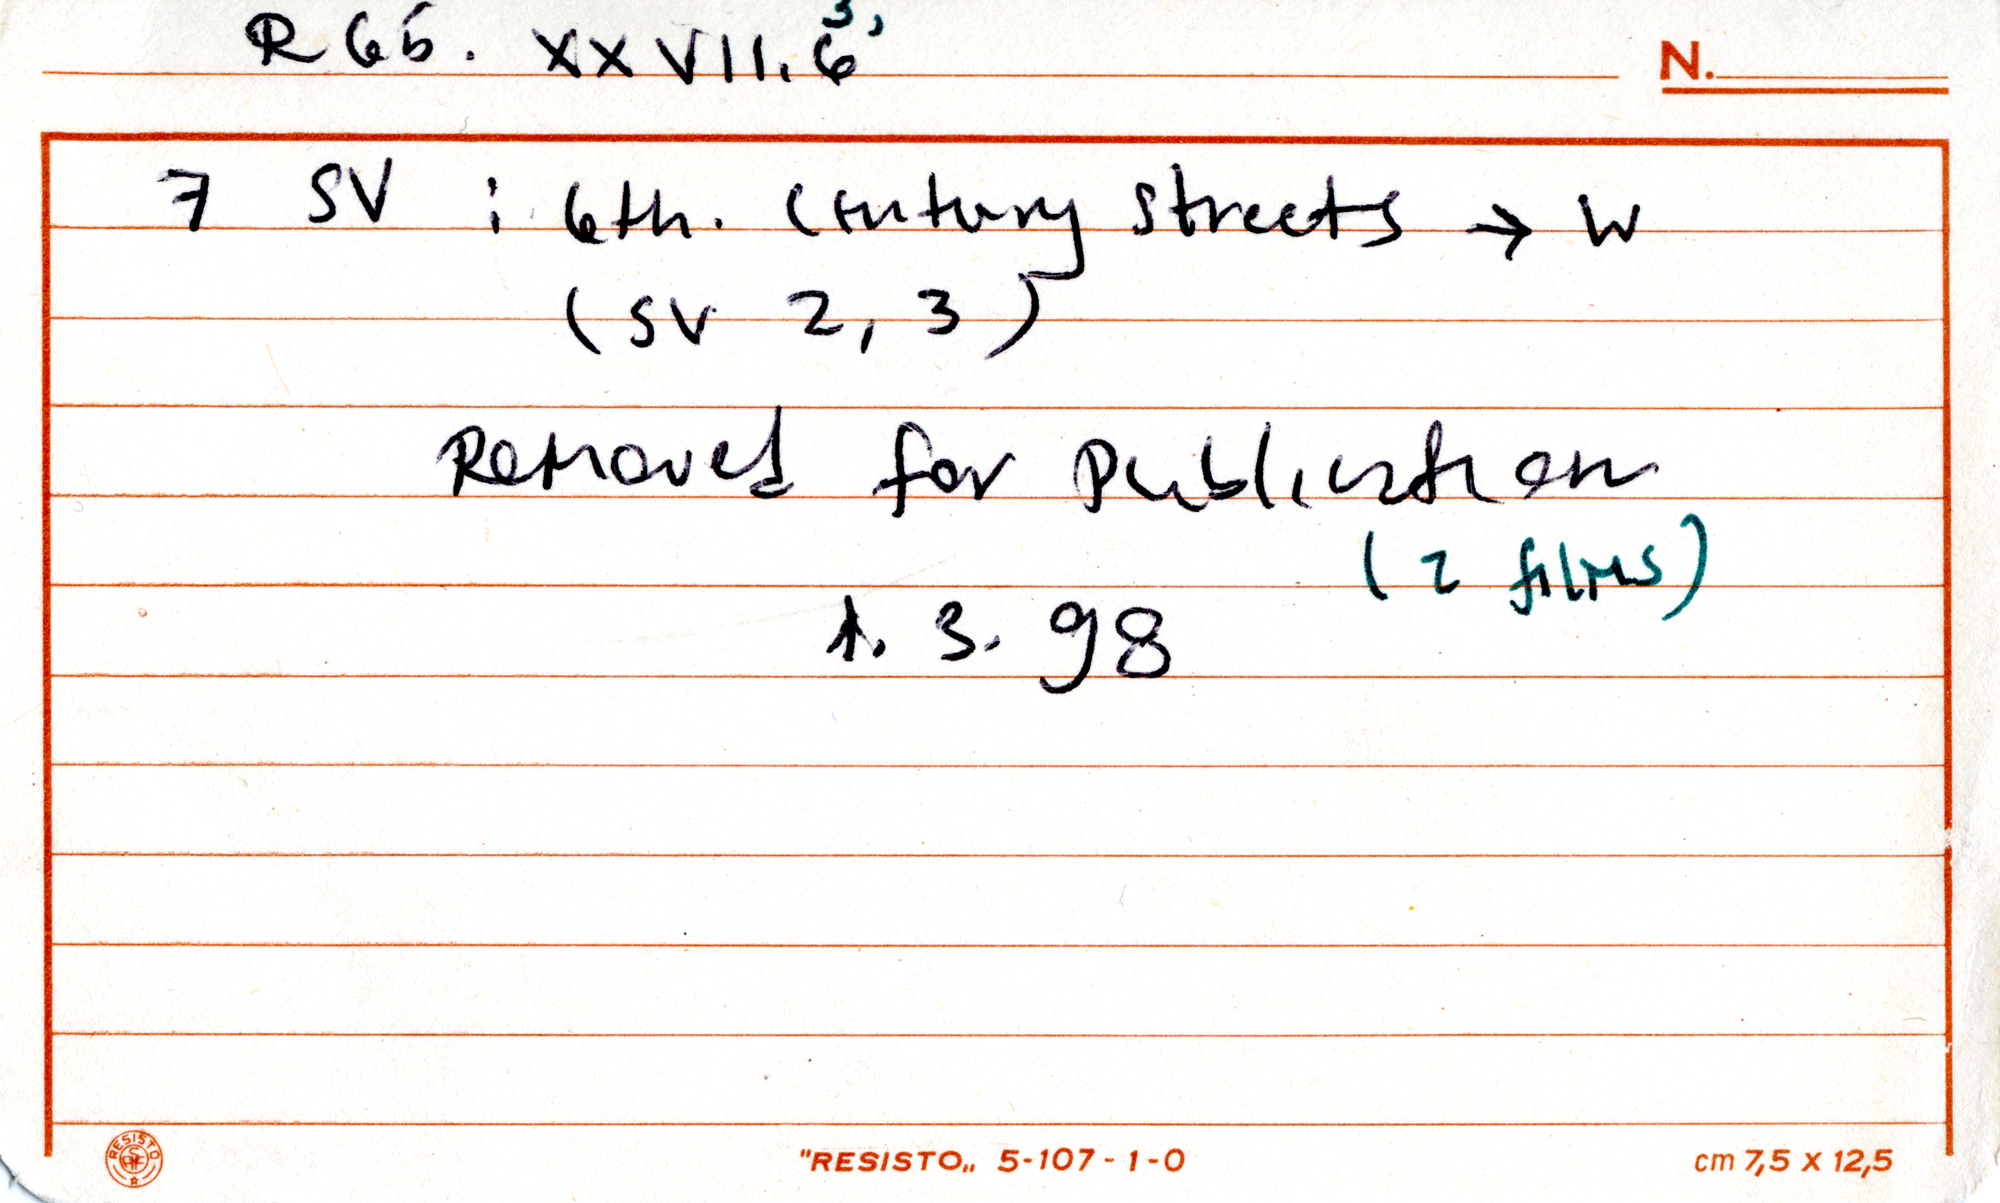 R 66. XXVII.6 3,
N.
7 SV : 6th. Century streets → W
(SV 2, 3)
Removed for Publication
(2 films)
1. 3. 98
RESISTO
"RESISTO„ 5-107-1-0
cm 7,5 x 12,5